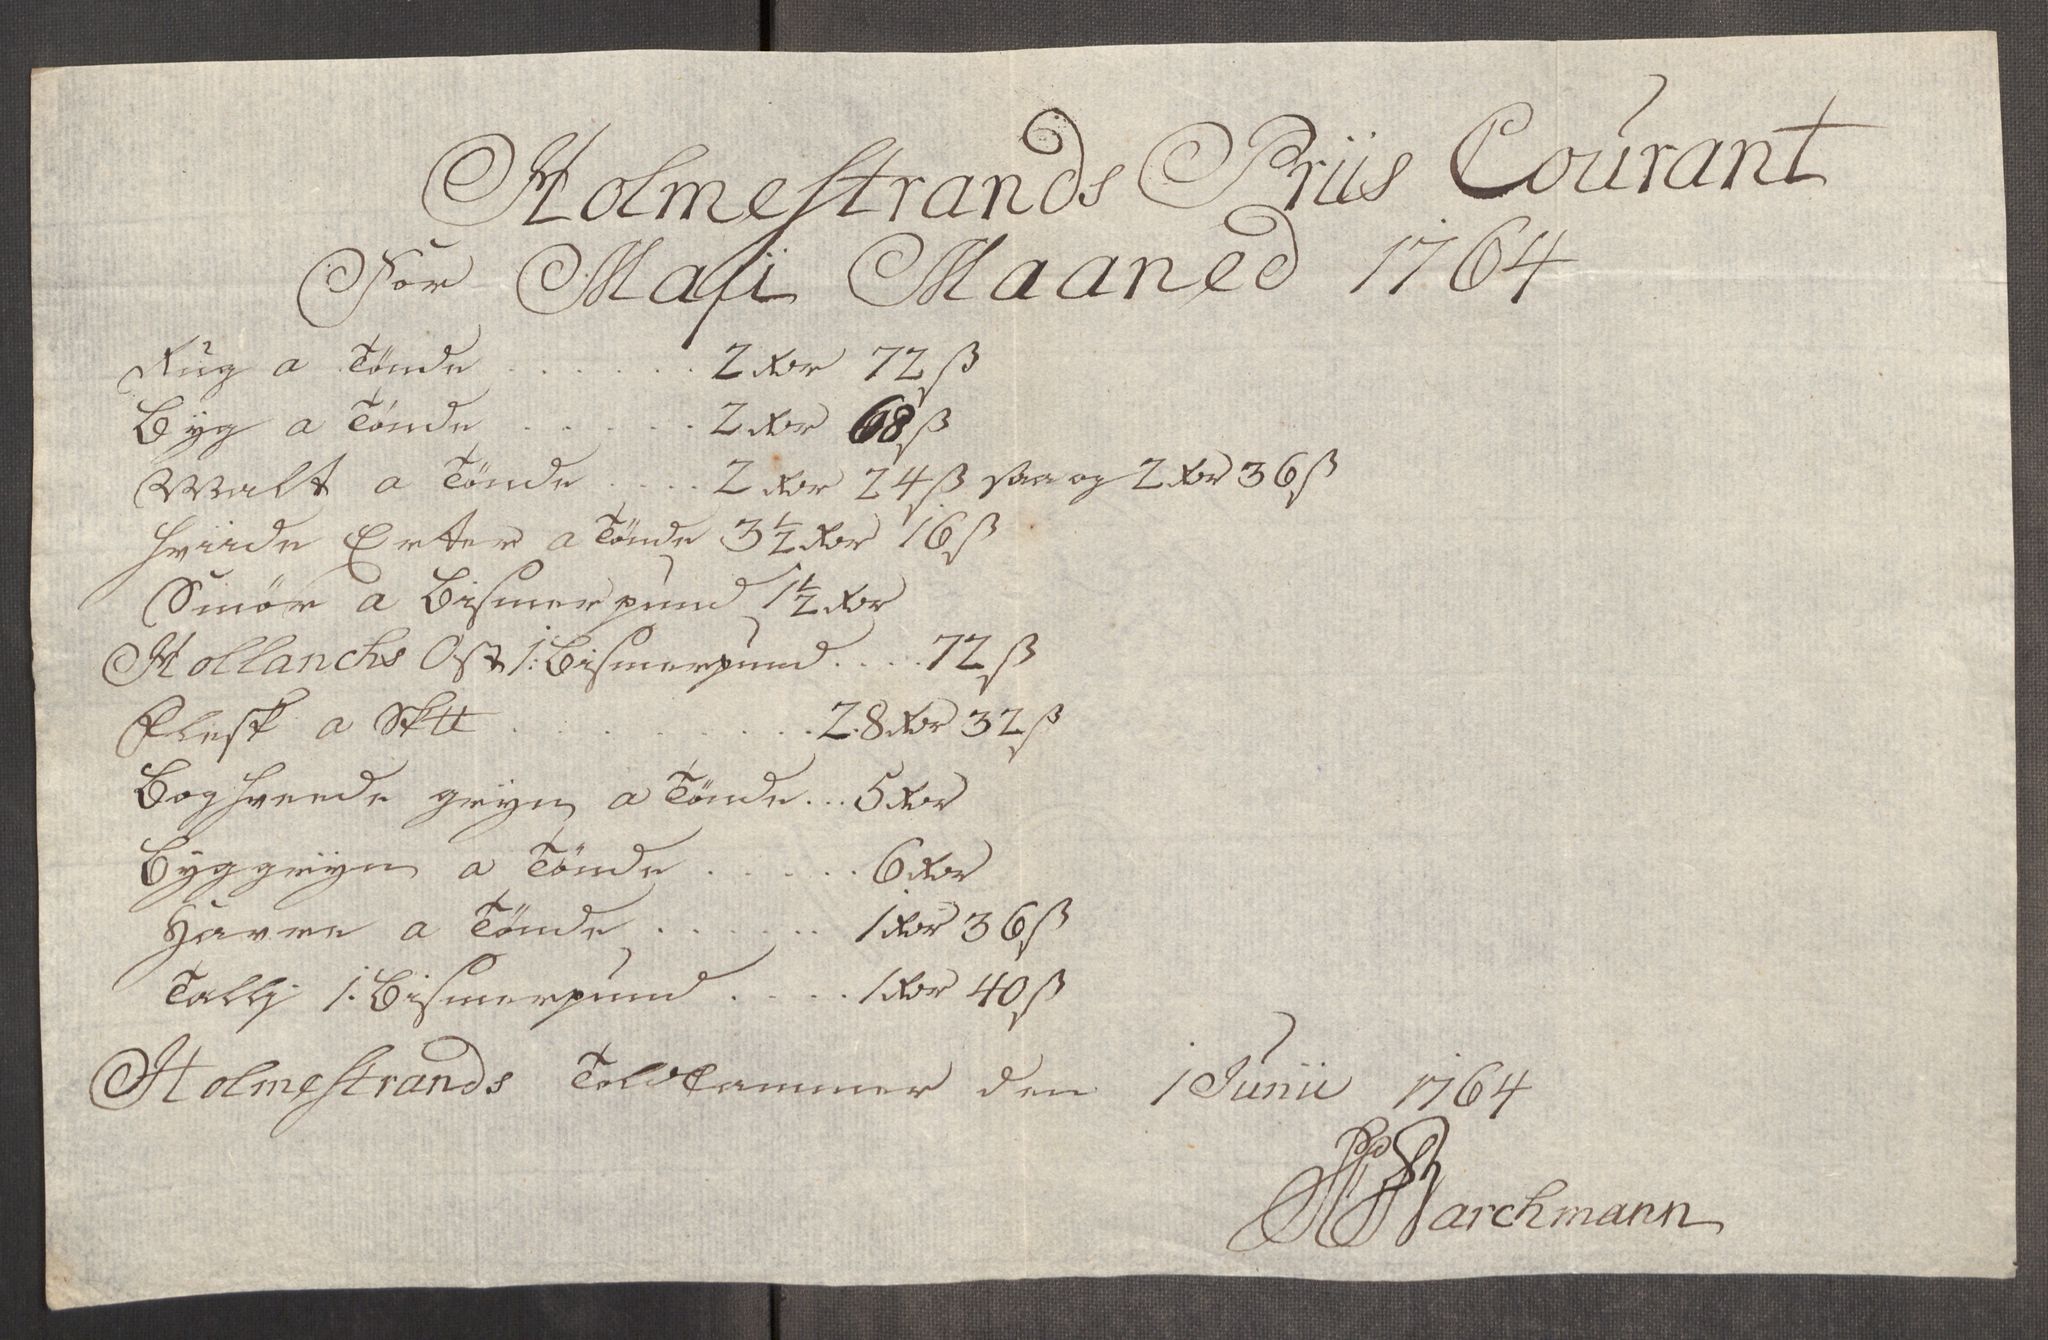 Holmestrands Priis Courant
For Maji Maaned 1764
Rug a Tønde . . . . . . 2 Rdr 72 ß
Byg a Tønde . . . . . . 2 Rdr 68 ß
Malt a Tønde . . . . 2 Rdr 24 ß saa og 2 Rdr 36 ß
hviide Erter a Tønde 3½ Rdr 16 ß
Smör a Bismerpund 1½ Rdr
Hollanchs Ost 1: Bismerpund . . . . 72 ß
Flesk a Sktt . . . . . . . . . . 28 Rdr 32 ß
Boghvede gryn a Tønde . . . 5 Rdr
Byggryn a Tönde . . . . . . 6 Rdr
Havre a Tønde . . . . . . 1 Rdr 36 ß
Tallj 1: Bismerpund . . . . 1 Rdr 40 ß
Holmestrands Toldkammer den 1 Junii 1764
Barchmann